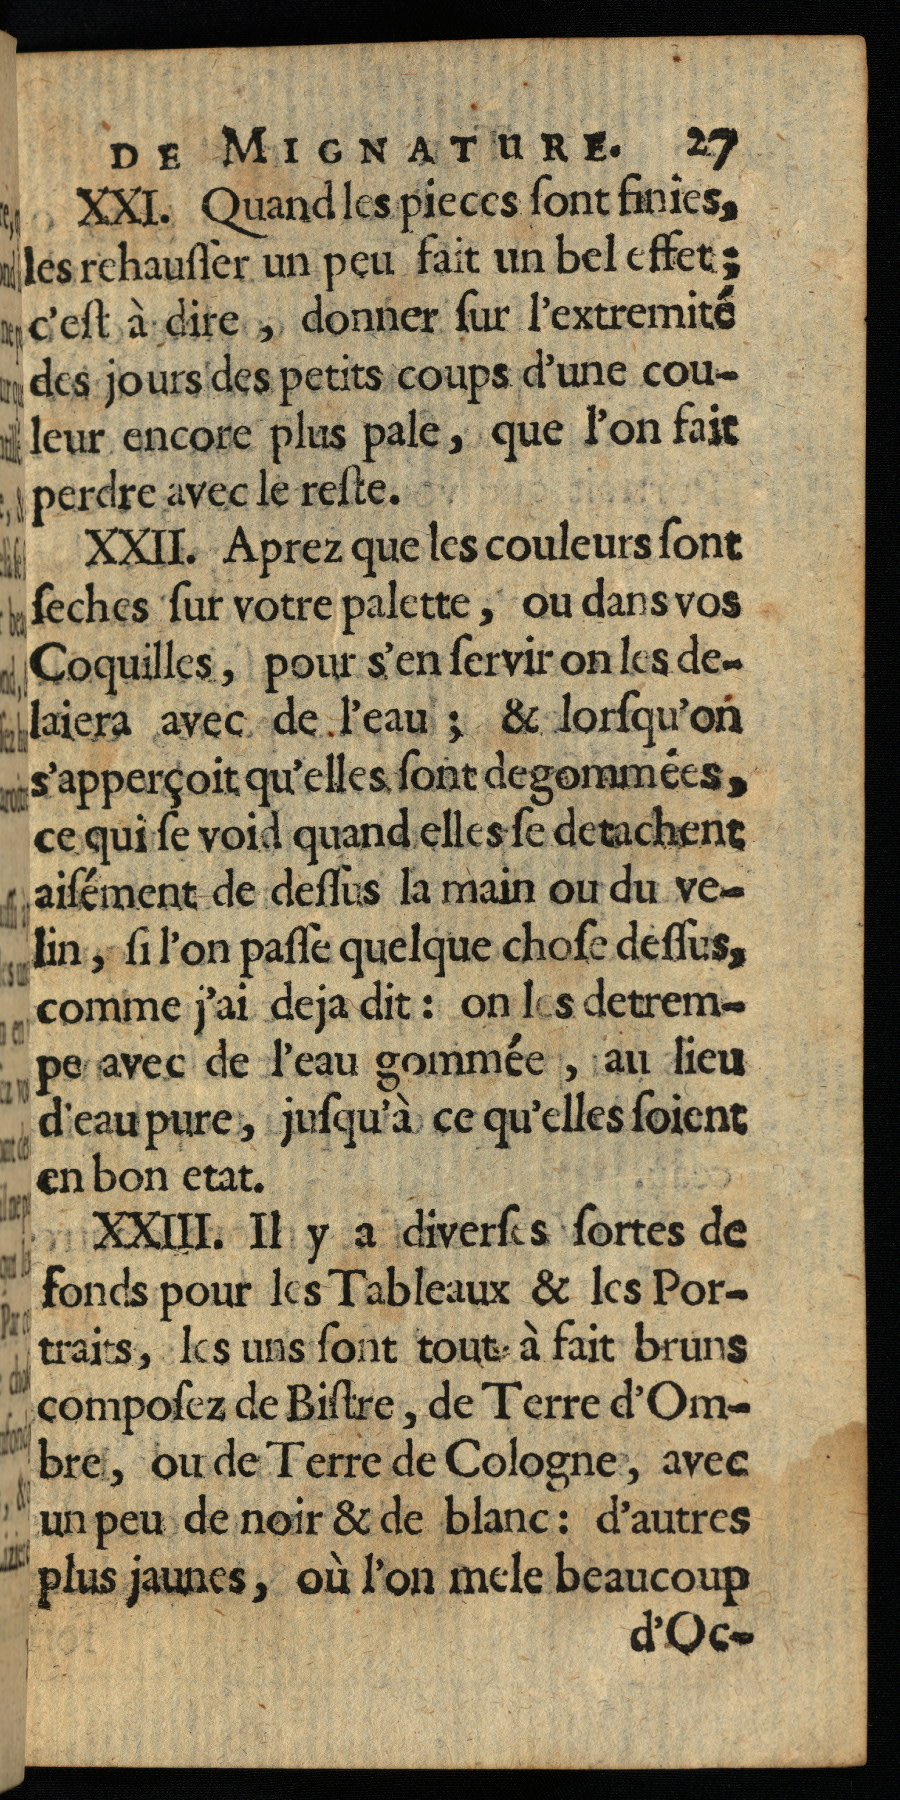 DE MIGNATURE. 27
XXI. Quand les pieces ſont finies,
les rehauſſer un peu fait un bel effet;
c'eſt à dire, donner ſur l'extremité
des jours des petits coups d'une cou-
leur encore plus pale, que l'on fait
perdre avec le reſte.
XXII. Aprez que les couleurs ſont
ſeches ſur votre palette, ou dans vos
Coquilles, pour s'en ſervir on les de-
laiera avec de l'eau; & lorſqu'on
s'apperçoit qu'elles ſont degommées,
ce qui ſe void quand elles ſe detachent
aiſément de deſſus la main ou du ve-
lin, ſi l'on paſſe quelque choſe deſſus,
comme j'ai deja dit: on les detrem-
pe avec de l'eau gommée, au lieu
d'eau pure, juſqu'à ce qu'elles ſoient
en bon etat.
XXIII. Il y a diverſes ſortes de
fonds pour les Tableaux & les Por-
traits, les uns ſont tout à fait bruns
compoſez de Biſtre, de Terre d'Om-
bre, ou de Terre de Cologne, avec
un peu de noir & de blanc: d'autres
plus jaunes, où l'on mele beaucoup
d'Oc-